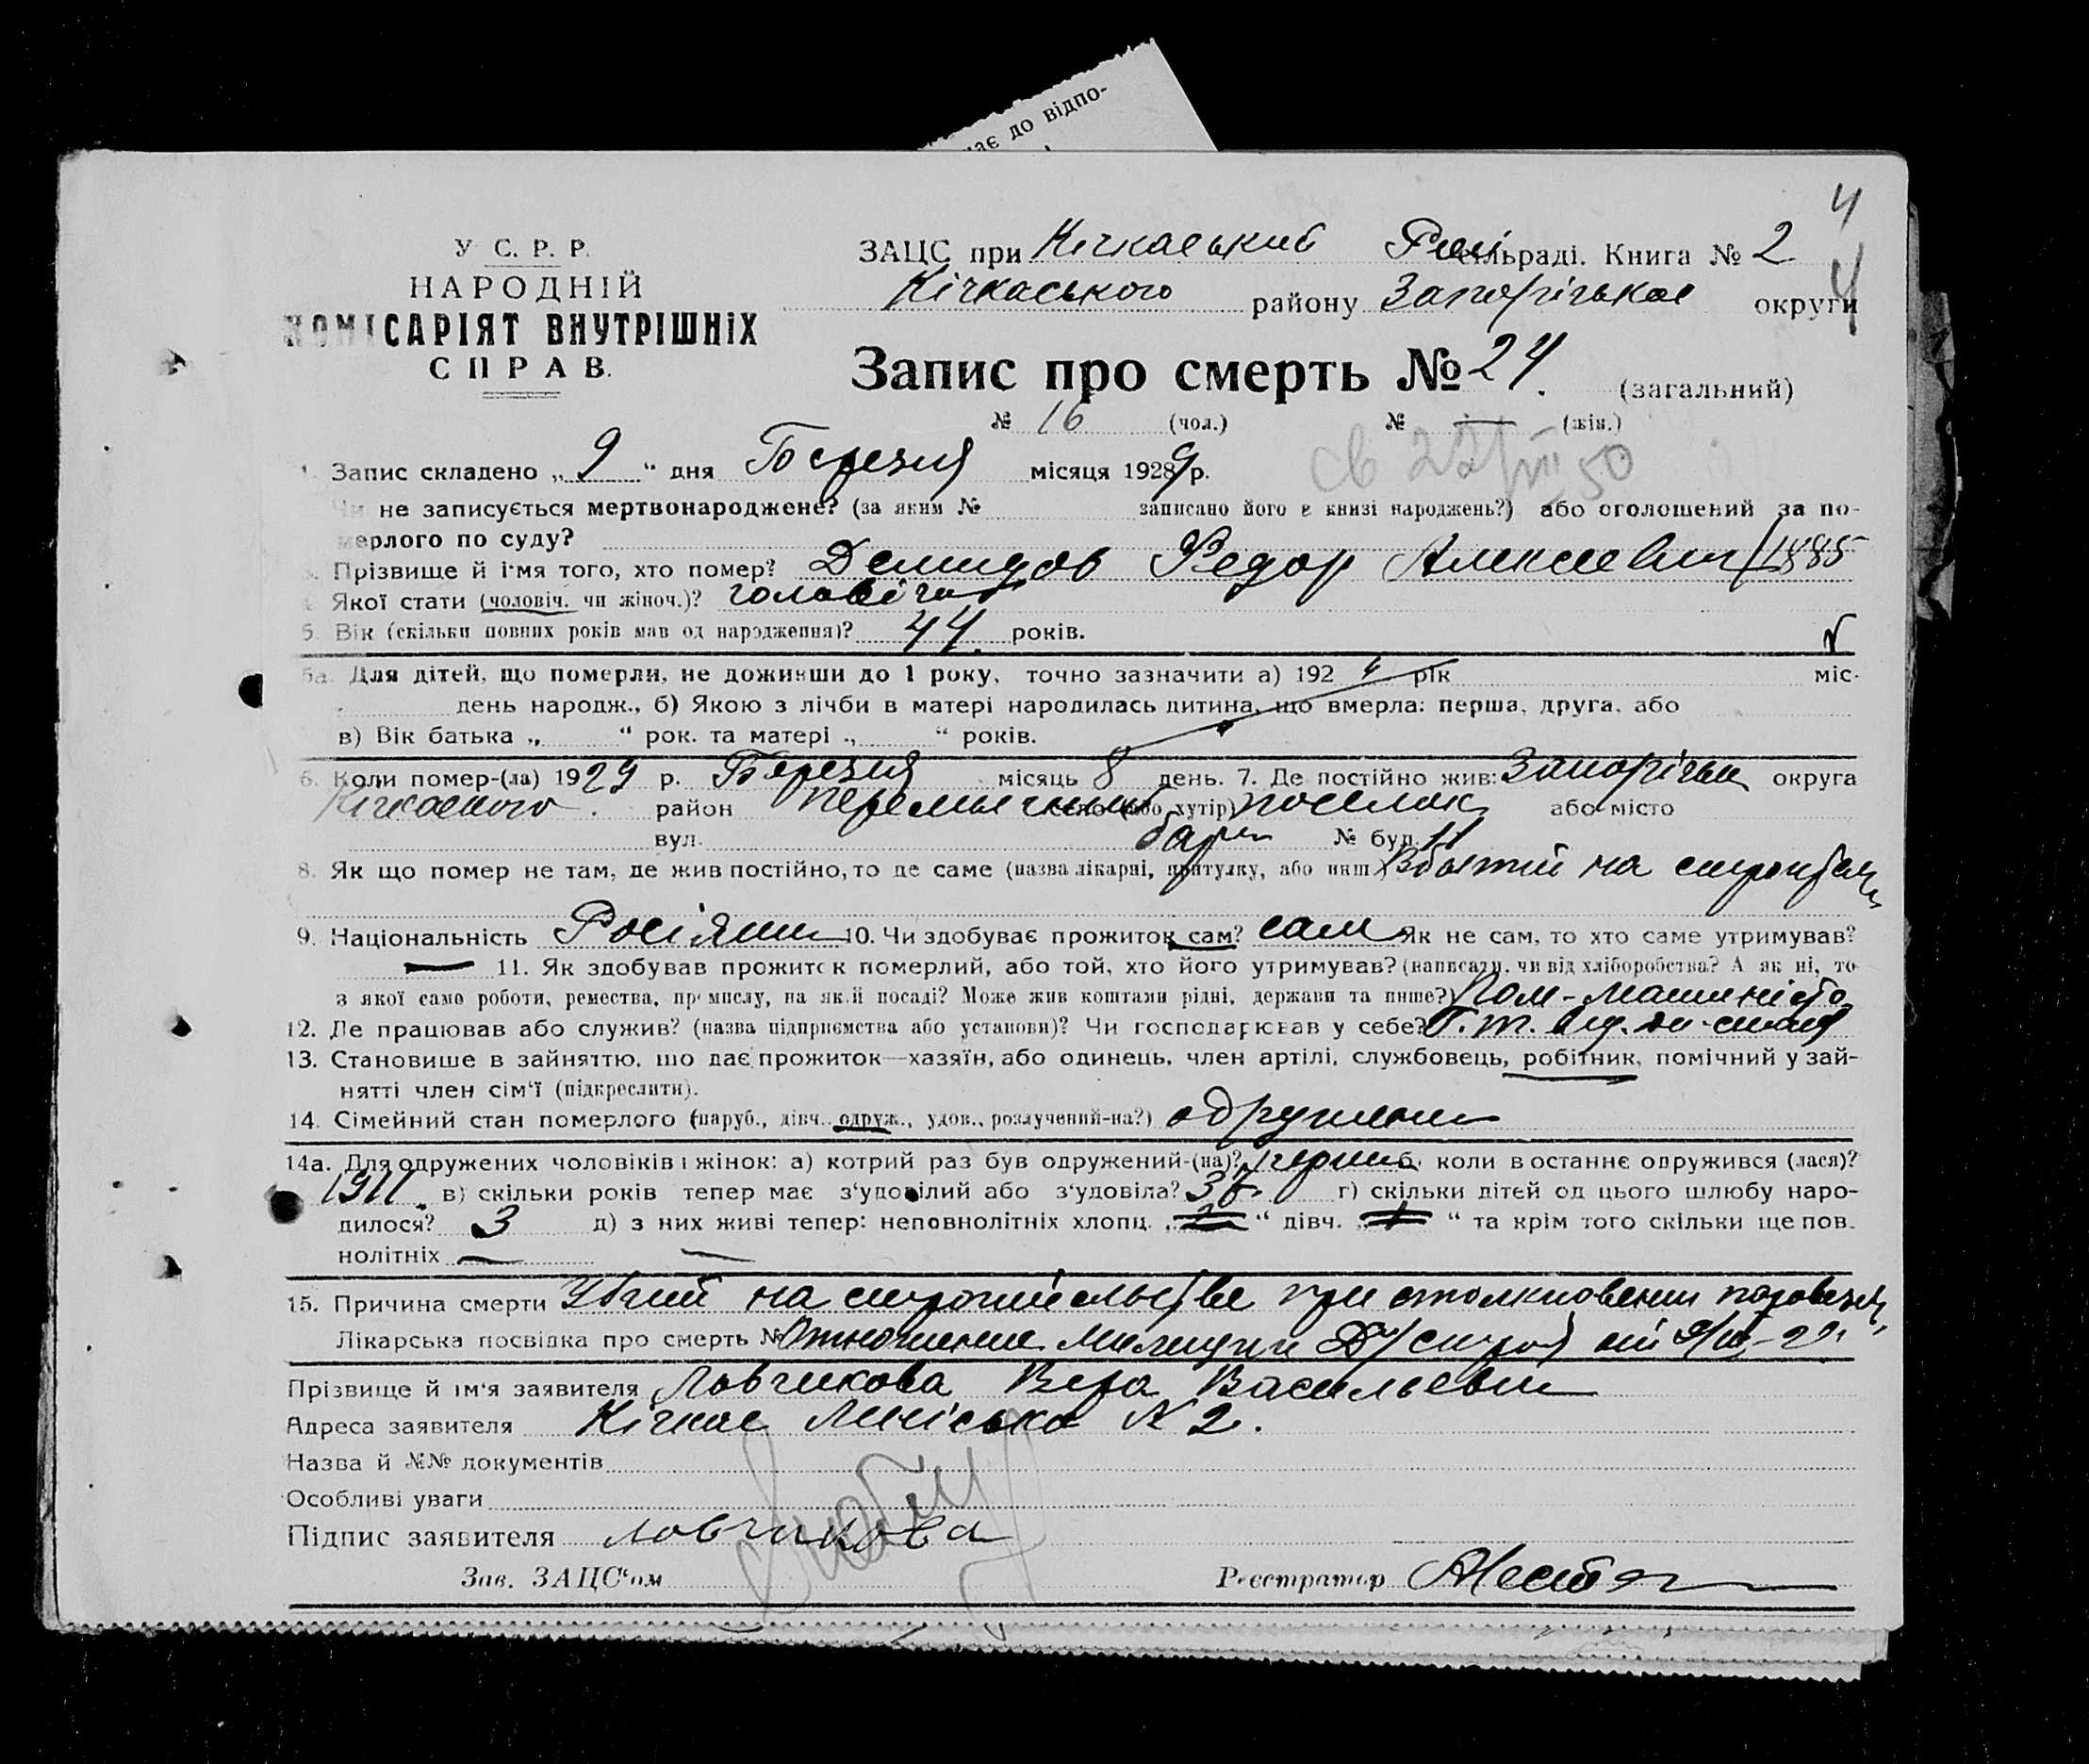 ає до відпо-
4
У С. Р. Р.
НАРОДНІЙ
КОМІСАРІЯТ ВНУТРІШНІХ
СПРАВ.
ЗАЦС при Кічкаський сільраді. Книга № 2
4
Кічкаського району Запорізькое округи
Запис про смерть № 24. (загальний)
№ 16 (чол.) № — (жін.)
св 22/VII 50
1. Запис складено „ 9 “ дня Березня місяця 1929 р.
Чи не записується мертвонароджене? (за яким № записано його в книзі народжень?) або оголошений за по-
мерлого по суду?
3. Прізвище й імя того, хто помер? Демидов Федор Алексеевич 1885
4. Якої стати (чоловіч. чи жіноч.)? чоловіча
5. Вік (скільки повних років мав од народження)? 44. років.
5а. Для дітей, що померли, не доживши до 1 року, точно зазначити а) 192 рік міс.
день народж., б) Якою з лічби в матері народилась дитина, що вмерла: перша, друга, або
в) Вік батька „ “ рок. та матері „ “ років.
6. Коли помер-(ла) 1929 р. Березня місяць 8 день. 7. Де постійно жив: Запорізьк округа
Кічкаського район село (або хутір) поселок або місто
вул. барак № буд. 11
8. Як що помер не там, де жив постійно, то де саме (назва лікарні, притулку, або инш.) Вбитий на
9. Національність Росіянин 10. Чи здобуває прожиток сам? сам Як не сам, то хто саме утримував?
— 11. Як здобував прожиток померлий, або той, хто його утримував? (написати, чи від хліборобства? А як ні, то
з якої само роботи, ремества, промислу, на якій посаді? Може жив коштами рідні, держави та инше?) Пом-машиніста
12. Де працював або служив? (назва підприємства або установи)? Чи господарював у себе?
13. Становише в зайняттю, що дає прожиток—хазяїн, або одинець, член артілі, службовець, робітник, помічний у зай-
нятті член сім'ї (підкреслити).
14. Сімейний стан померлого (паруб., дівч., одруж., удов., розлучений-на?) одружени
14а. Для одружених чоловіків і жінок: а) котрий раз був одружений-(на)? перший б) коли в останнє одружився (лася)?
1911 в) скільки років тепер має з'удовілий або з'удовіла? 37. г) скільки дітей од цього шлюбу наро-
дилося? 3 д) з них живі тепер: неповнолітніх хлопц. „ 2 “ дівч. „ 1 “ та крім того скільки ще пов-
нолітніх —
15. Причина смерти Убитий на строительстве при столкновении паровозов
Лікарська посвідка про смерть № Отношение Милиции
Прізвище й ім'я заявителя Ловчикова Вера Васильевн
Адреса заявителя Кічкас № 2.
Назва й №№ документів
Особливі уваги
Підпис заявителя Ловчикова
Зав. ЗАЦС'ом Реєстратор